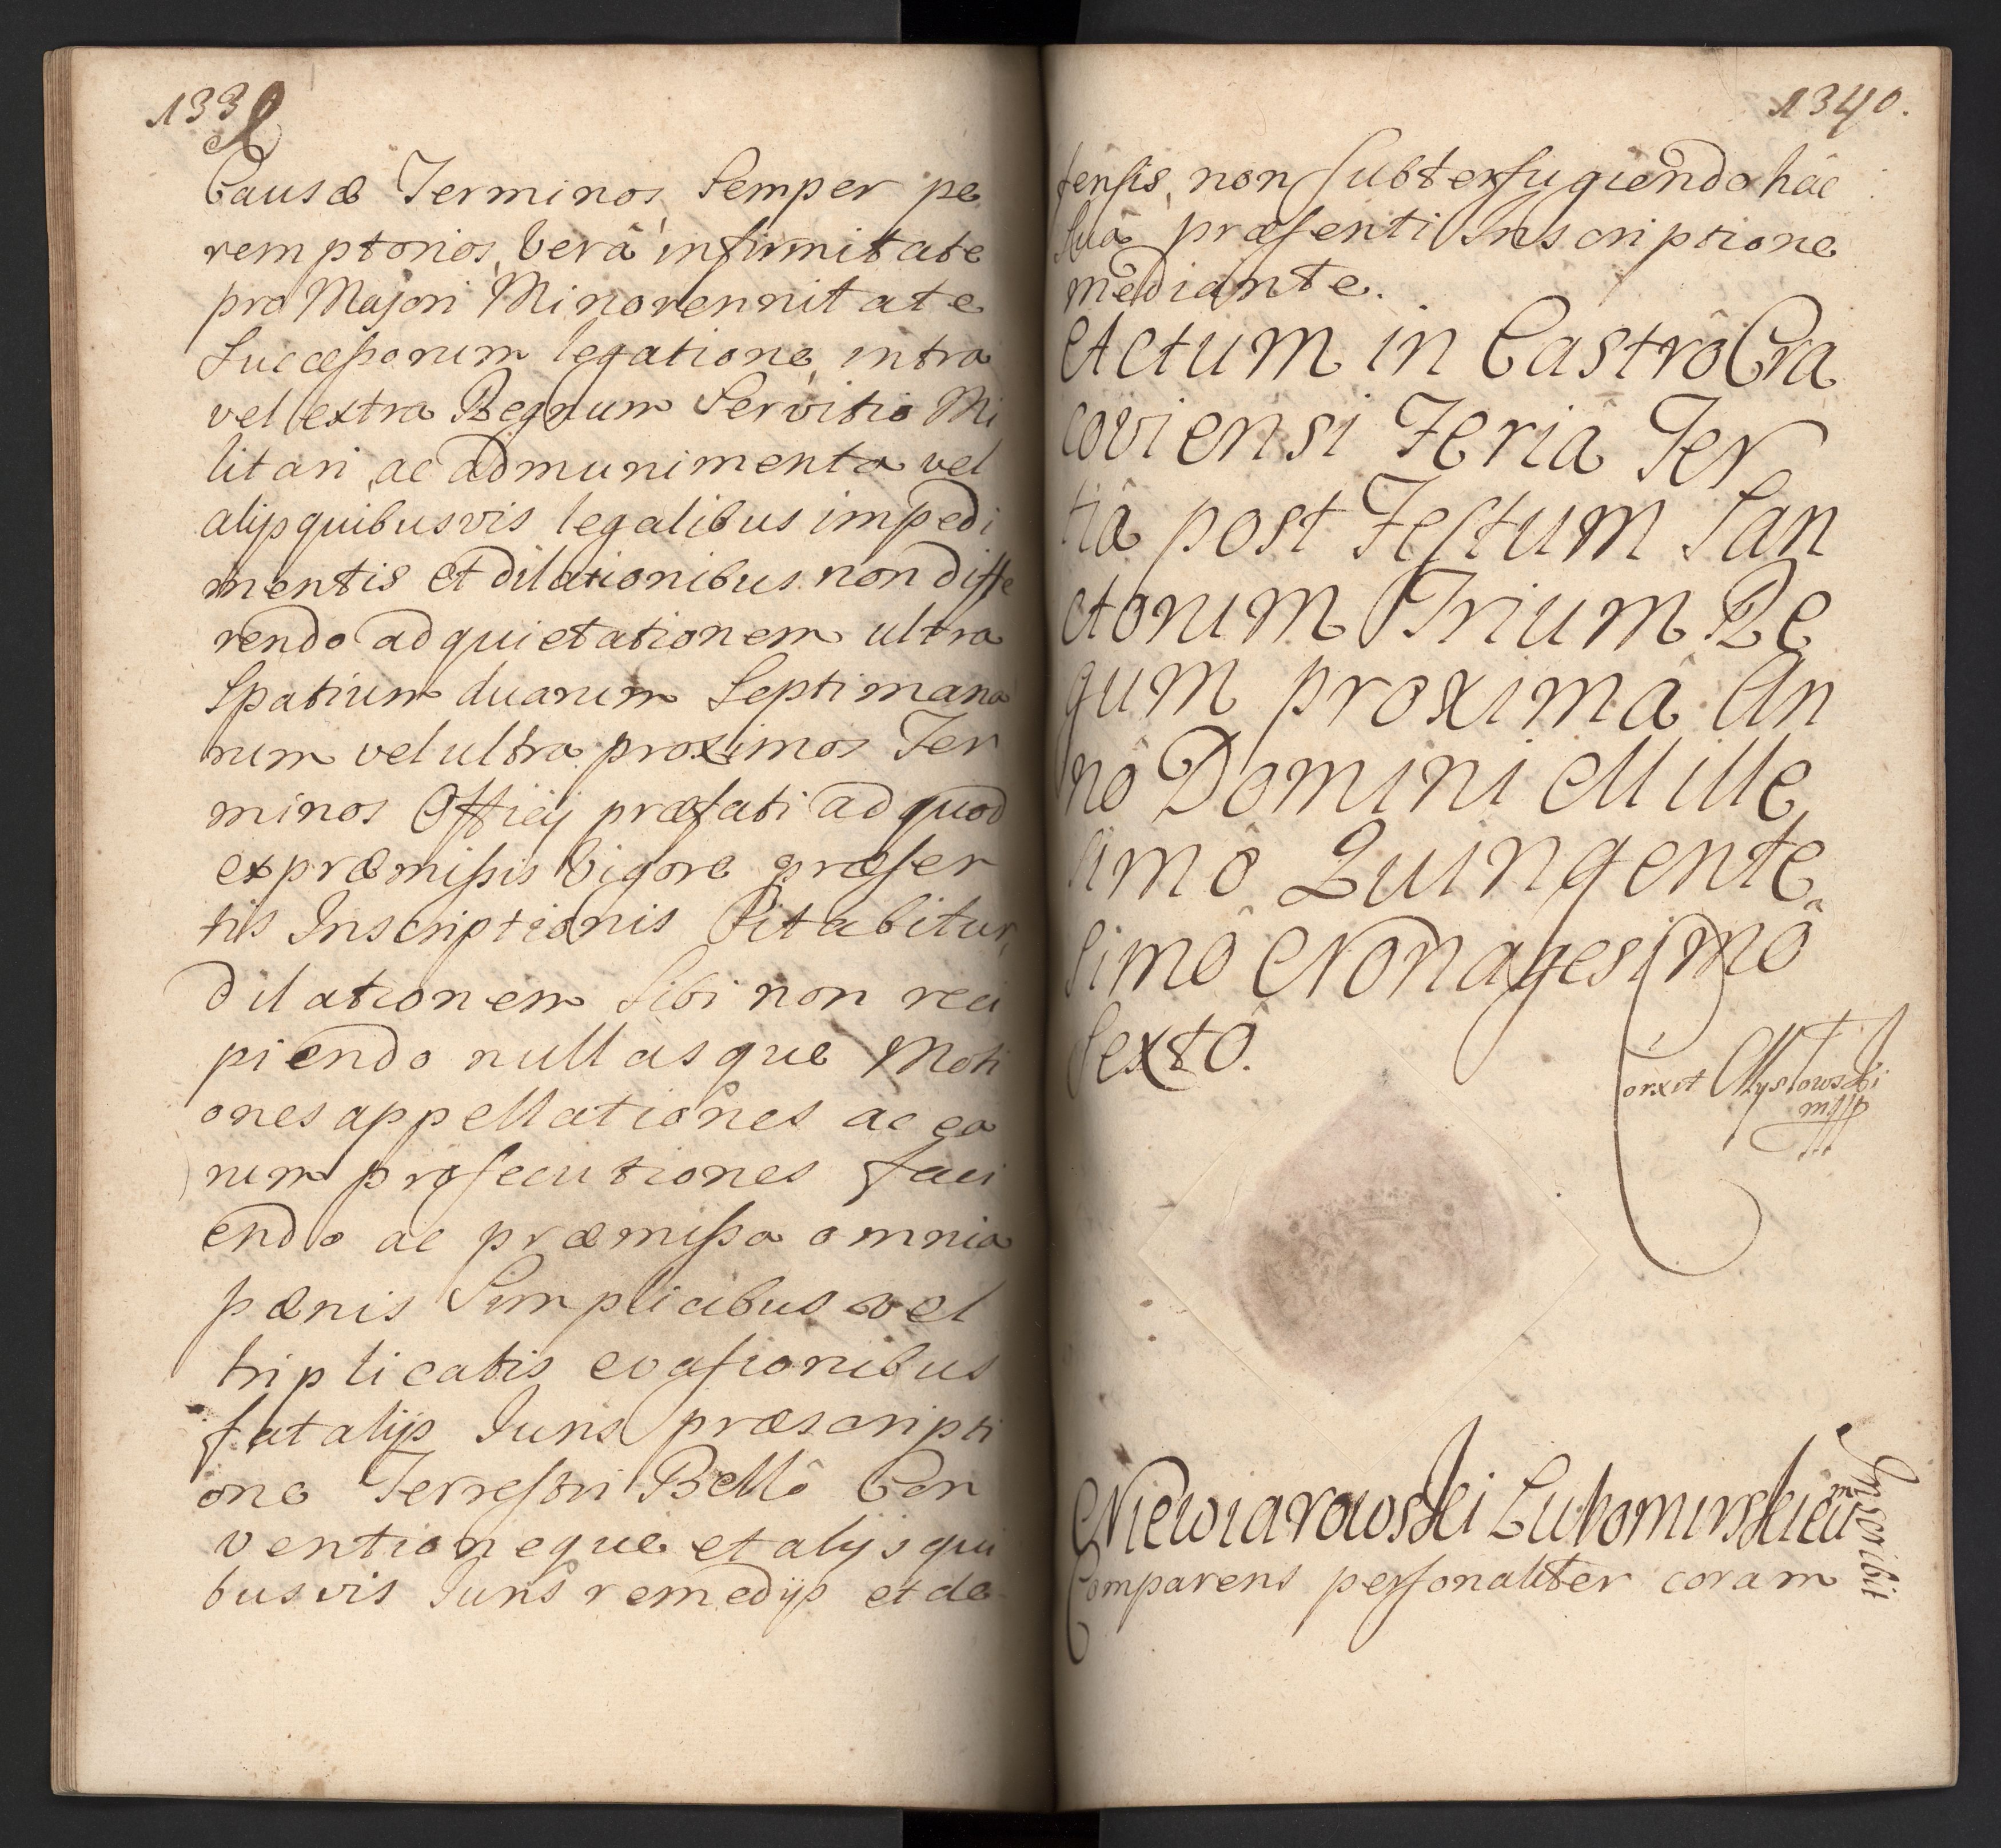 1339
Causæ Terminos Semper pe
remptorios, verâ infirmitate
pro Majori Minorennitate
Successorum legatione, intra
vel extra Regnum Servitio Mi
litari, ac admunimenta vel
alijs quibusvis legalibus impedi
mentis et dilationibus non diffe
rendo ad quietationem ultra
Spatium duarum Septimana
rum vel ultra proximos Ter
minos Officij præfati ad quod
ex præmissis vigore præsen
tis Inscriptionis Citabitur,
dilationem Sibi non reci
piendo nullasque Moti
ones appellationes ac ea
rum prosecutiones faci
endo ac præmissa omnia
pænis Simplicibus vel
triplicatis evasionibus
fatalijs Juris præscripti
one Terrestri Bellô Con
ventioneque et alijs qui
busvis Juris remedijs et de
1340.
fensis, non subterfugiendo hâc
Suâ præsenti Inscriptione
mediante.
Actum in Castrô Cra
coviensi Feriâ Ter
tiâ post Festum San
ctorum Trium Re
gum proximâ An
nô Domini Mille
simô Quingente
simô Nonagesimô
Sextô.
Niewiarowski Lubomirskiem
Inscribit
Comparens personaliter coram